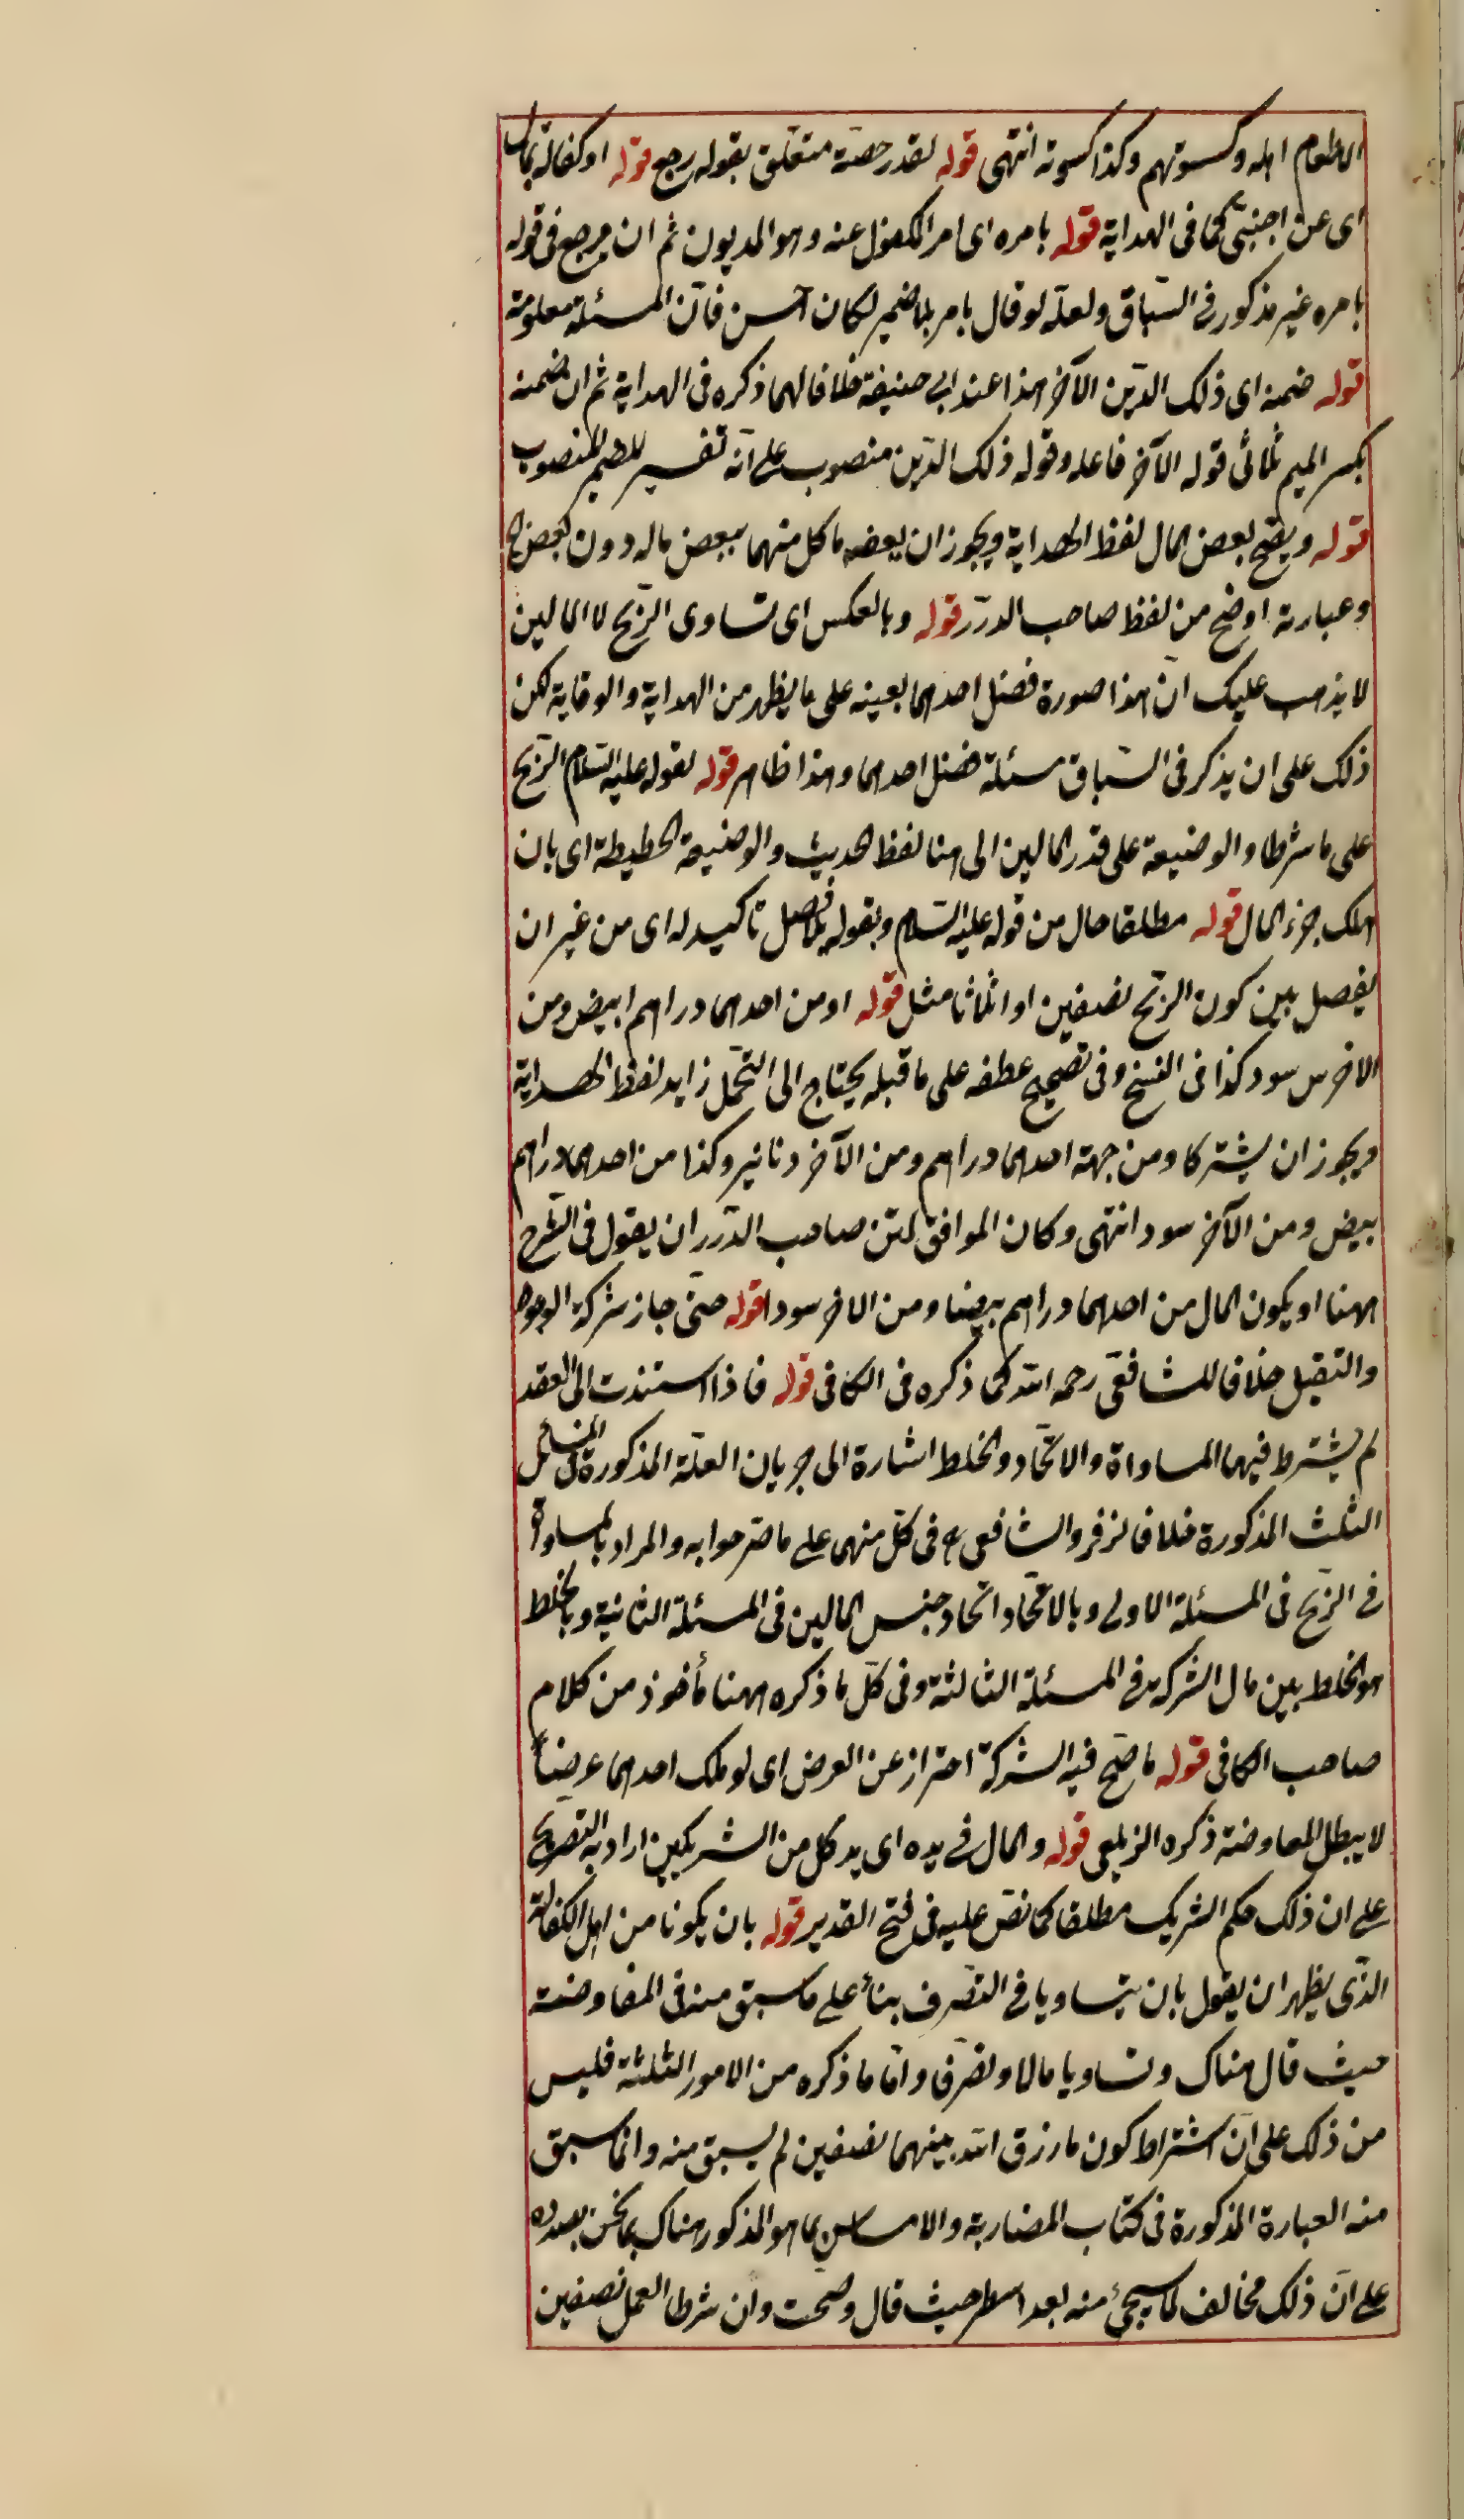 الا طعام اهله وكسوتهم وكذا كسوته انتهى قوله لقدر حصته متعلق بقوله رجع قوله او كفاله بمال
اى عن اجنبى كما فى الهداية قوله بامره اى امر المكفول عنه وهو المديون ثم ان مرجع فى قوله
بامره غير مذكور فى السباق ولعله لو قال بامر بلا ضمير لكان احسن فان المسئلة معلومة
قوله ضمنه اى ذلك الدين الآخر هذا عند ابى حنيفة خلافا لهما ذكره فى الهداية ثم ان ضمنه
بكسر الميم ثلاثى قوله الآخر فاعله وقوله ذلك الدين منصوب على انه تفسير للضمير المنصوب
قوله ويصح ببعض المال لفظ الهداية ويجوز ان يعقدها كل منهما ببعض ماله دون بعض
وعبارته اوضح من لفظ صاحب الدرر قوله وبالعكس اى تساوى الربح لا المالين
لا يذهب عليك ان هذا صورة فضل احدهما بعينه على ما يظهر من الهداية والوقاية لكن
ذلك على ان يذكر فى السباق مسئلة فضل احدهما وهذا ظاهر قوله لقوله عليه السلام الربح
على ما شرطا والوضيعة على قدر المالين الى هنا لفظ الحديث والوضيعة الحطيطة اى بان
هلك جزء المال قوله مطلقا حال من قوله عليه السلام وبقوله بلا فصل تاكيد له اى من غير ان
يفصل بين كون الربح نصفين او اثلاثا مثل قوله او من احدهما دراهم ابيض ومن
الاخر سود كذا فى النسخ وفى تصحيح عطفه على ما قبله يحتاج الى التحمل زايد لفظ الهداية
ويجوز ان يشتركا ومن جهة احدهما دراهم ومن الآخر دنانير وكذا من احدهما دراهم
بيض ومن الآخر سود انتهى وكان الموافق لمتن صاحب الدرر ان يقول فى الشرح
ههنا او يكون المال من احدهما دراهم بيضا ومن الاخر سودا قوله حتى جاز شركة الوجوه
والتقبل خلافا للشافعى رحمه الله كما ذكره فى الكافى قوله فاذا استندت الى العقد
لم يشترط فيهما المساواة والاتحاد والخلط اشارة الى جريان العلة المذكورة فى المسائل
الثلث المذكورة خلافا لزفر والشافعى فى كل منهما على ما صرحوا به والمراد بالمساواة
فى الربح فى المسئلة الاولى وبالاتحاد اتحاد جنس المالين فى المسئلة الثانية وبالخلط
هو الخلط بين مال الشركة فى المسئلة الثالثة وفى كل ما ذكره ههنا مأخوذ من كلام
صاحب الكافى قوله ما صح فيه الشركة احتراز عن العرض اى لو ملك احدهما عرضا
لا يبطل المفاوضة ذكره الزيلعى قوله والمال فى يده اى يد كل من الشريكين اراد به التصريح
على ان ذلك حكم الشريك مطلقا كما نص عليه فى فتح القدير قوله بان يكونا من اهل الكفالة
الذى يظهر ان يقول بان يتساويا فى التصرف بناء على ما سبق منه فى المفاوضة
حيث قال هناك وتساويا مالا وتصرفا واما ما ذكره من الامور الثلثة فليس
من ذلك على ان اشتراط كون ما رزق الله بينهما نصفين لم يسبق منه وانما سبق
منه العبارة المذكورة فى كتاب المضاربة والاساس بما هو المذكور هناك بما نحن بصدده
على ان ذلك مخالف لما سيجئ منه بعد اسطر حيث قال وصحت وان شرطا العمل نصفين